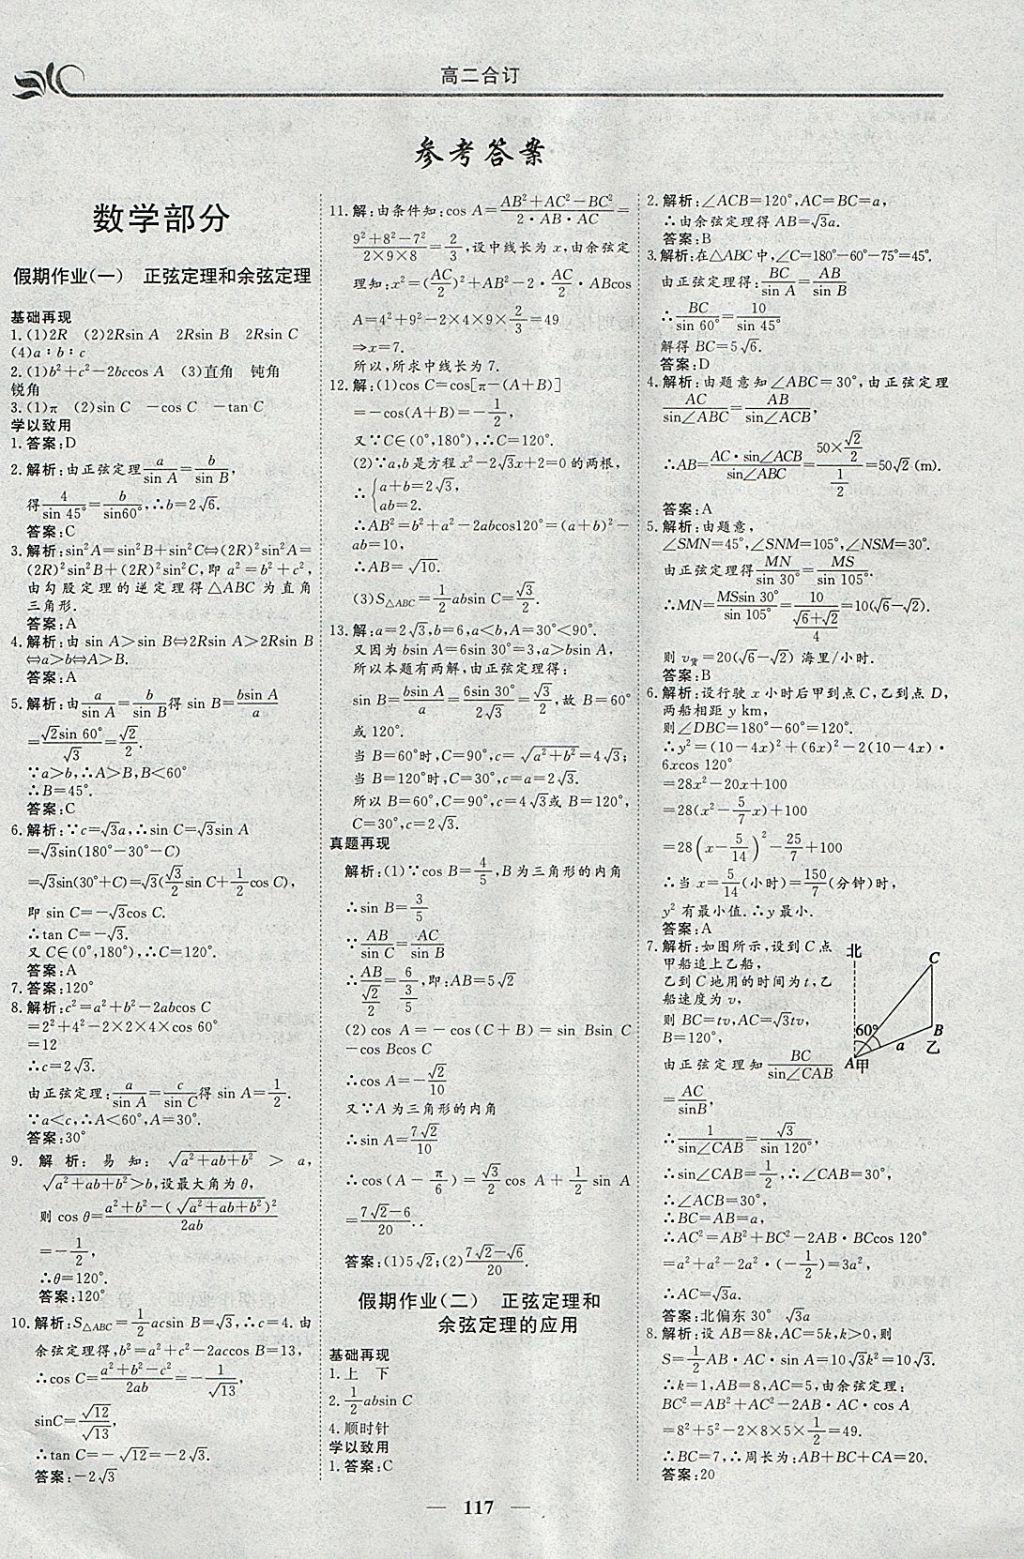 高二合订
参考答案
数学部分
假期作业(一)　正弦定理和余弦定理
基础再现
1.(1)2R　(2)2Rsin A　2Rsin B　2Rsin C
(4)a∶b∶c
2.(1)b²+c²-2bccos A　(3)直角　钝角
锐角
3.(1)π　(2)sin C　-cos C　-tan C
学以致用
1.答案:D
2.解析:由正弦定理a/sin A=b/sin B,
得4/sin 45°=b/sin60°,∴b=2√6.
答案:C
3.解析:sin²A=sin²B+sin²C⇔(2R)²sin²A=
(2R)²sin²B+(2R)²sin²C,即a²=b²+c²,
由勾股定理的逆定理得△ABC为直角
三角形.
答案:A
4.解析:由sin A>sin B⇔2Rsin A>2Rsin B
⇔a>b⇔A>B.
答案:A
5.解析:由a/sin A=b/sin B得sin B=bsin A/a
=√2sin 60°/√3=√2/2.
∵a>b,∴A>B,B<60°
∴B=45°.
答案:C
6.解析:∵c=√3a,∴sin C=√3sin A
=√3sin(180°-30°-C)
=√3sin(30°+C)=√3(√3/2sin C+1/2cos C),
即sin C=-√3cos C.
∴tan C=-√3.
又C∈(0°,180°),∴C=120°.
答案:A
7.答案:120°
8.解析:c²=a²+b²-2abcos C
=2²+4²-2×2×4×cos 60°
=12
∴c=2√3.
由正弦定理:a/sin A=c/sin C得sin A=1/2.
∵a<c,∴A<60°,A=30°.
答案:30°
9.解析:易知:√(a²+ab+b²)>a,
√(a²+ab+b²)>b,设最大角为θ,
则cos θ=(a²+b²-(√(a²+ab+b²))²)/2ab
=-1/2,
∴θ=120°.
答案:120°
10.解析:S△ABC=1/2acsin B=√3,∴c=4.由
余弦定理得,b²=a²+c²-2accos B=13,
∴cos C=(a²+b²-c²)/2ab=-1/√13,
sinC=√12/√13,
∴tan C=-√12=-2√3.
答案:-2√3
11.解:由条件知:cos A=(AB²+AC²-BC²)/(2·AB·AC)=
(9²+8²-7²)/(2×9×8)=2/3,设中线长为x,由余弦定
理知:x²=(AC/2)²+AB²-2·AC/2·ABcos
A=4²+9²-2×4×9×2/3=49
⇒x=7.
所以,所求中线长为7.
12.解:(1)cos C=cos[π-(A+B)]
=-cos(A+B)=-1/2,
又∵C∈(0°,180°),∴C=120°.
(2)∵a,b是方程x²-2√3x+2=0的两根,
∴{a+b=2√3,
ab=2.
∴AB²=b²+a²-2abcos120°=(a+b)²-
ab=10,
∴AB=√10.
(3)S△ABC=1/2absin C=√3/2.
13.解:a=2√3,b=6,a<b,A=30°<90°.
又因为bsin A=6sin 30°=3,a>bsin A,
所以本题有两解,由正弦定理得:
sin B=bsin A/a=6sin 30°/2√3=√3/2,故B=60°
或120°.
当B=60°时,C=90°,c=√(a²+b²)=4√3;
当B=120°时,C=30°,c=a=2√3.
所以B=60°,C=90°,c=4√3或B=120°,
C=30°,c=2√3.
真题再现
解析:(1)∵cos B=4/5,B为三角形的内角
∴sin B=3/5
∵AB/sin C=AC/sin B
∴AB/(√2/2)=6/(3/5),即:AB=5√2
(2)cos A=-cos(C+B)=sin Bsin C
-cos Bcos C
∴cos A=-√2/10
又∵A为三角形的内角
∴sin A=7√2/10
∴cos(A-π/6)=√3/2 cos A+1/2 sin A
=(7√2-6)/20..
答案:(1)5√2;(2)(7√2-√6)/20.
假期作业(二)　正弦定理和
余弦定理的应用
基础再现
1.上　下
2.1/2absin C
4.顺时针
学以致用
1.答案:C
2.解析:∠ACB=120°,AC=BC=a,
∴由余弦定理得AB=√3a.
答案:B
3.解析:在△ABC中,∠C=180°-60°-75°=45°.
由正弦定理得:BC/sin A=AB/sin B
∴BC/sin 60°=10/sin 45°
解得BC=5√6.
答案:D
4.解析:由题意知∠ABC=30°,由正弦定理
AC/sin∠ABC=AB/sin∠ACB,
∴AB=AC·sin∠ACB/sin∠ABC=(50×√2/2)/(1/2)=50√2(m).
答案:A
5.解析:由题意,
∠SMN=45°,∠SNM=105°,∠NSM=30°.
由正弦定理得MN/sin 30°=MS/sin 105°.
∴MN=MSsin 30°/sin 105°=10/((√6+√2)/4)=10(√6-√2).
则v货=20(√6-√2)海里/小时.
答案:B
6.解析:设行驶x小时后甲到点C,乙到点D,
两船相距y km,
则∠DBC=180°-60°=120°.
∴y²=(10-4x)²+(6x)²-2(10-4x)·
6xcos 120°
=28x²-20x+100
=28(x²-5/7x)+100
=28(x-5/14)²-25/7+100
∴当x=5/14(小时)=150/7(分钟)时,
y²有最小值.∴y最小.
答案:A
7.解析:如图所示,设到C点
甲船追上乙船,
乙到C地用的时间为t,乙
船速度为v,
则BC=tv,AC=√3tv,
B=120°,
由正弦定理知BC/sin∠CAB
=AC/sinB,
∴1/sin∠CAB=√3/sin 120°,
∴sin∠CAB=1/2,∴∠CAB=30°,
∴∠ACB=30°,
∴BC=AB=a,
∴AC²=AB²+BC²-2AB·BCcos 120°
=a²+a²-2a²·(-1/2)=3a²,
∴AC=√3a.
答案:北偏东30°　√3a
北
C
60°
B
a
乙
A
甲
8.解析:设AB=8k,AC=5k,k>0,则
S=1/2AB·AC·sin A=10√3k²=10√3.
∴k=1,AB=8,AC=5,由余弦定理:
BC²=AB²+AC²-2AB·AC·cos A
=8²+5²-2×8×5×1/2=49.
∴BC=7,∴周长为:AB+BC+CA=20.
答案:20
117